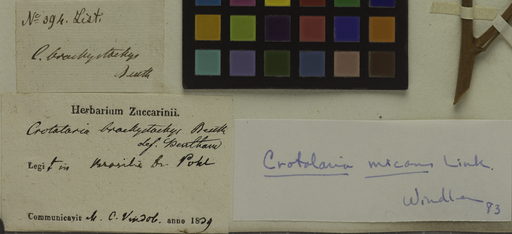 No 394. List.
C. brachystachys
Benth
Herbarium Zuccarinii.
Crotalaria brachystachys Benth
def. Bentham
Legit in Brasilia Dr. Pohl
Communicavit M. C. Vindob. anno 1839
Crotalaria micans Link.
Windler 83